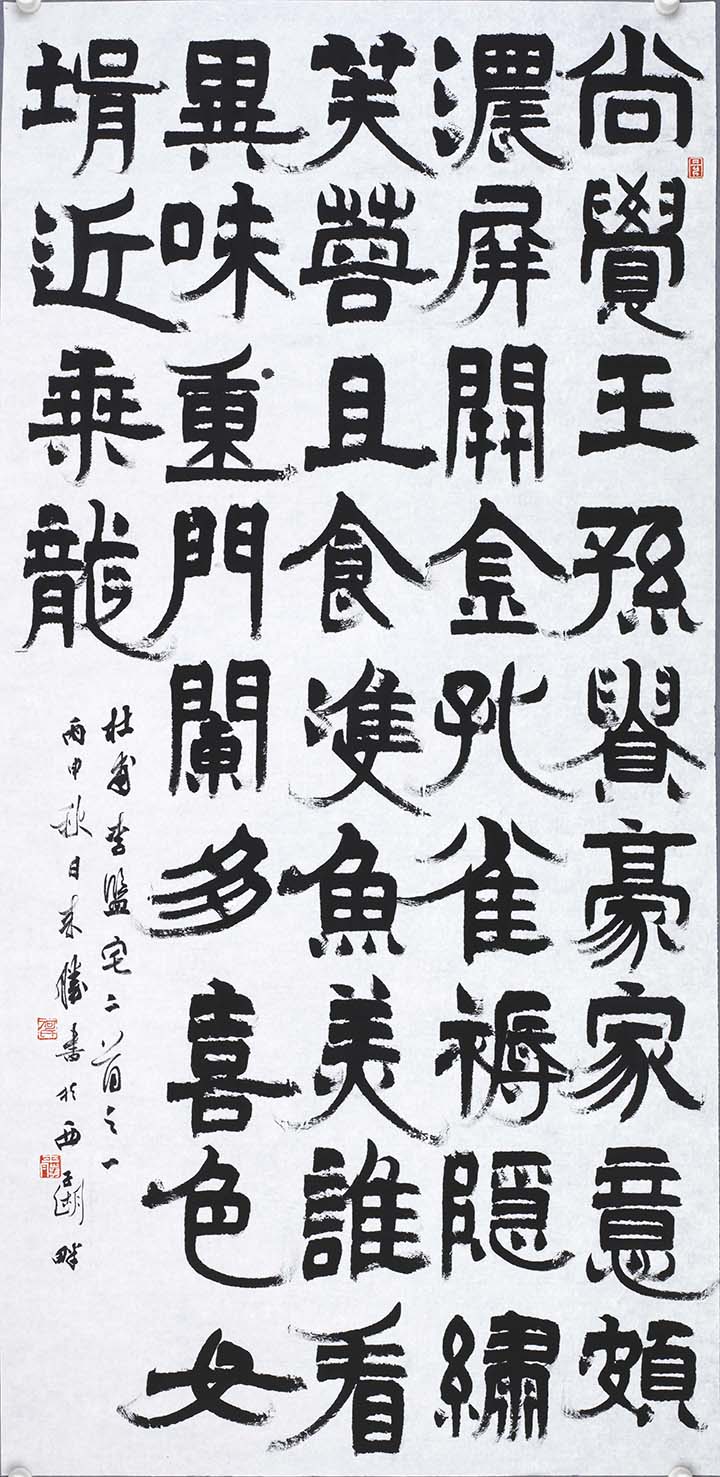 尚覺王孫貴豪家意頗
濃屏開金孔雀褥隱繡
芙蓉且食雙魚美誰看
異味重門闌多喜色女
壻近乘龍
杜甫李監宅二首之一
丙申秋日朱勝書於西湖畔